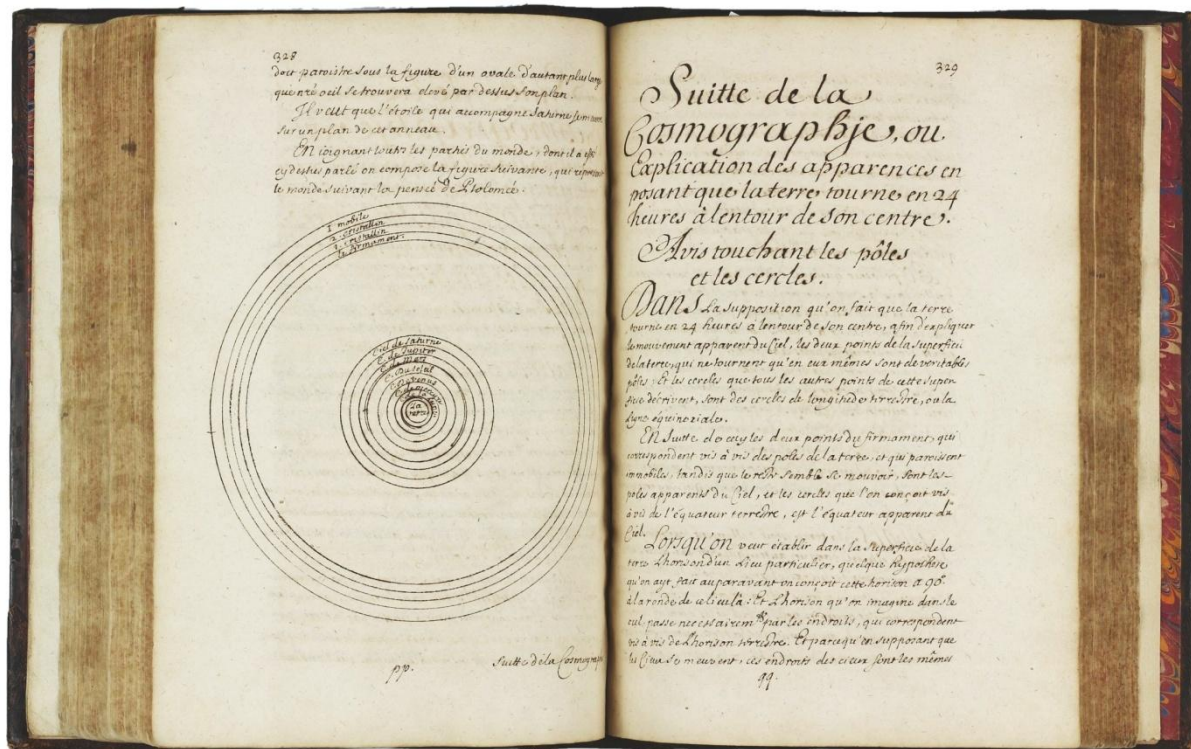 328
doit paroistre sous la figure d'un ovale, d'autant plus large
que n̄re oeil se trouvera elevé par dessus son plan.
Il veut que l'étoile qui accompagne Saturne se meuve
sur un plan de cet anneau.
EN joignant toutes les parties du monde, dont il a esté
cy dessus parlé on compose la figure suivante, qui represente
le monde suivant la pensée de Ptolomée.
1. mobile
2. cristallin
1. cristallin
le firmament.
Ciel de Saturne
C. de Jupiter
C. de Mars
C. du Soleil
C. de Venus
C. de Mercure
La
terre
pp.
Suitte de la Cosmograp
329
Suitte de la
Cosmographje, ou
Explication des apparences en
posant que la terre tourne en 24
heures à lentour de son centre.
Avis touchant les pôles
et les cercles.
Dans la supposition qu'on fait que la terre
tourne en 24 heures à lentour de son centre, afin d'expliquer
le mouvement apparent du Ciel, les deux points de la superficie
de la terre, qui ne tournent qu'en eux mêmes sont de veritables
pôles; Et les cercles que tous les autres points de cette super
ficie décrivent, sont des cercles de longitude terrestre, ou la
ligne équinoziale.
EN suitte de cecy les deux points du firmament, qui
correspondent vis à vis des poles de la terre, et qui paroissent
immobiles, tandis que le reste semble se mouvoir, sont les
poles apparents du Ciel, et les cercles que l'on conçoit vis
à vis de l'équateur terrestre, est l'équateur apparent du
Ciel.
Lorsqu'on veut établir dans la superficie de la
terre Lhorison d'un Lieu particulier, quelque hypothese
qu'on ayt fait auparavant on conçoit cette horison à 90°
à la ronde de ce lieu là: Et Lhorison qu'on imagine dans le
ciel passe necessairemt par les endroits, qui correspondent
vis à vis de Lhorison terrestre. Et parce qu'en supposant que
les Cieux se meuvent, ces endroits des cieux sont les mêmes
qq.